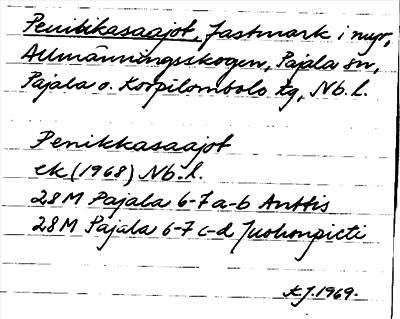 Penikkasaajot, fastmark i myr,
Allmänningsskogen, Pajala sn,
Pajala o. Korpilombolo tg, Nb. l.
Penikkasaajot
ek (1968) Nb. l.
28M Pajala 6-7 a-b Anttis
28M Pajala 6-7 c-d Juohonpieti
KJ. 1969.